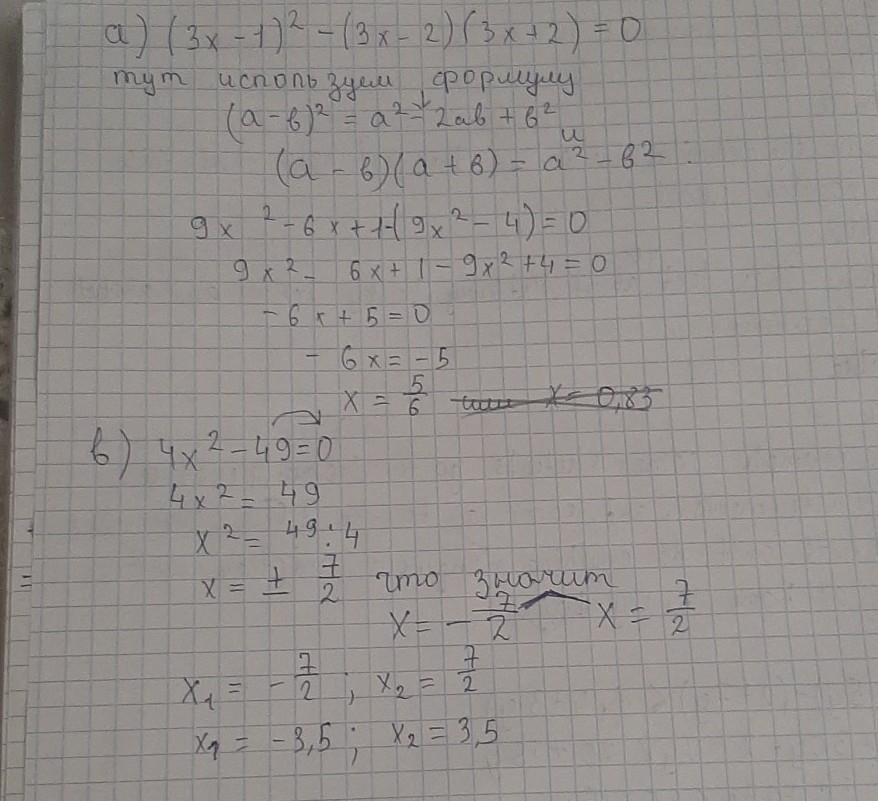 а) (3x - 1)² - (3x - 2)(3x + 2) = 0
тут используем формулу
(a - в)² = a² - 2aв + в²
и
(a - в)(a + в) = a² - в²
9x² - 6x + 1 - (9x² - 4) = 0
9x² - 6x + 1 - 9x² + 4 = 0
- 6x + 5 = 0
- 6x = -5
x = 5/6 или x = 0,83
в) 4x² - 49 = 0
4x² = 49
x² = 49 : 4
x = ± 7/2 что значит
x = - 7/2 x = 7/2
x₁ = - 7/2 ; x₂ = 7/2
x₁ = -3,5 ; x₂ = 3,5